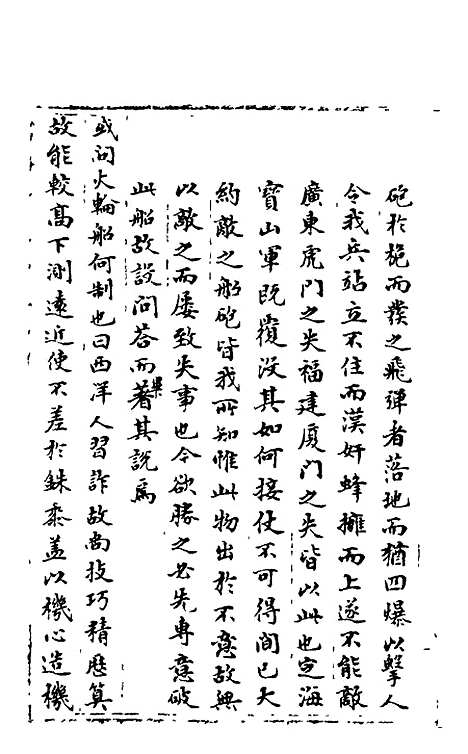 砲於桅而發之飛彈者落地而猶四爆以擊人
令我兵站立不住而漢奸蜂擁而上遂不能敵
廣東虎門之失福建厦門之失皆以此也定海
寶山軍既覆没其如何接仗不可得聞已大
約敵之船砲皆我所知惟此物出於不意故無
以敵之而屡致失事也今欲勝之必先專意破
此船故設問答而畢著其説焉
或问火輪船何制也曰西洋人習詐故尚技巧精歷算
故能較高下測遠近使不差於銖黍盖以機心造機